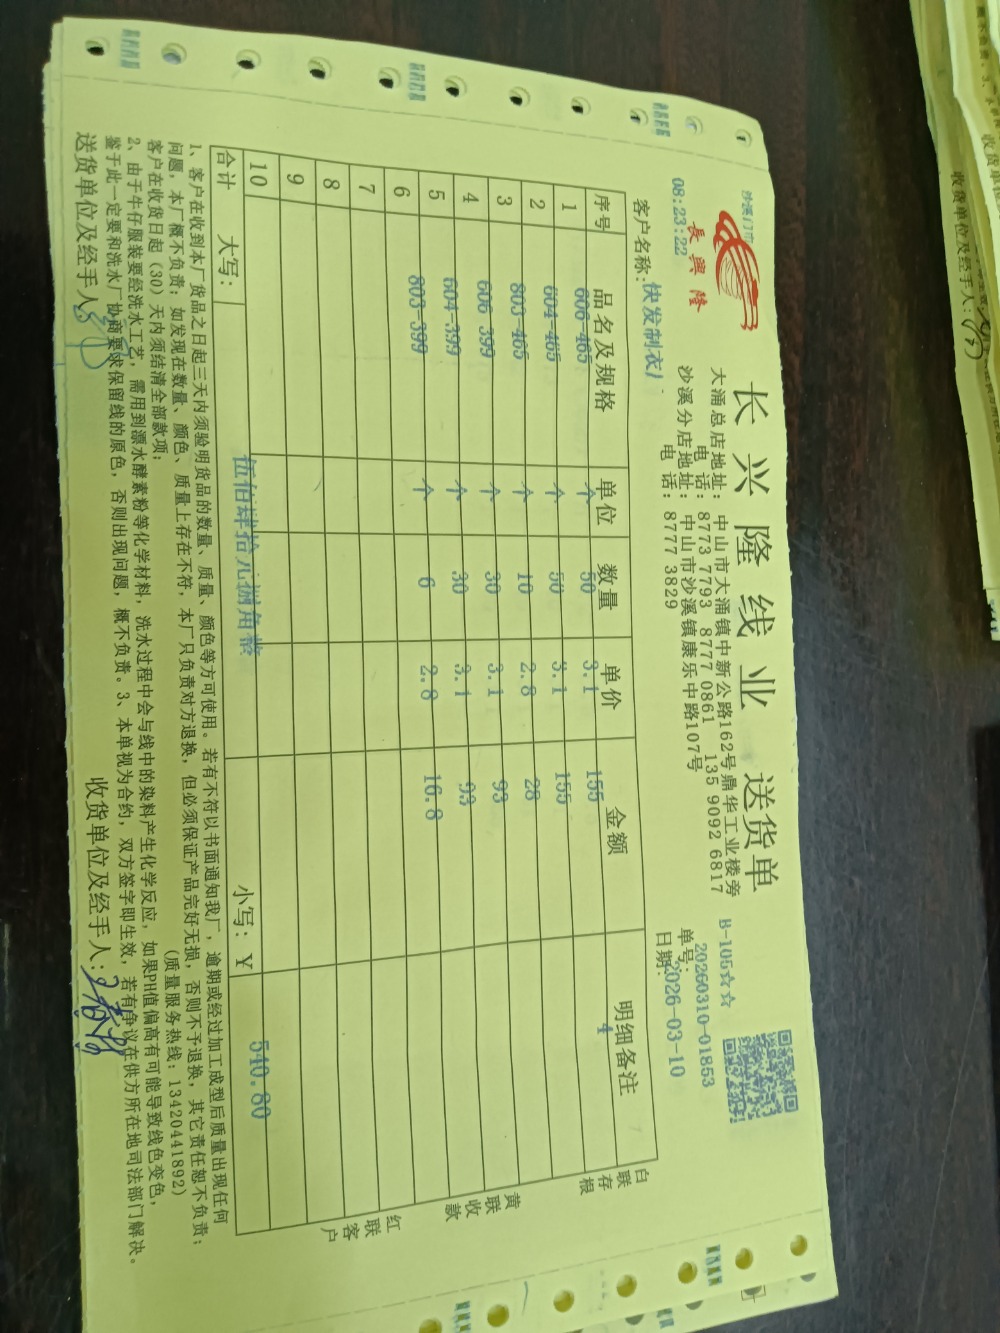 沙溪门市
長興隆
长兴隆线业 送货单
B-105☆☆
大涌总店地址：中山市大涌镇中新公路162号鼎华工业楼旁
电 话：8773 7793 8777 0861 135 9092 6817
沙溪分店地址：中山市沙溪镇康乐中路107号
电 话：8777 3829
单号：20260310-01853
日期：2026-03-10
08:23:22
客户名称：快发制衣厂
序号 品名及规格 单位 数量 单价 金额 明细备注
1 606-465 个 50 3.1 155 4
2 604-465 个 50 3.1 155
3 803-465 个 10 2.8 28
4 606 399 个 30 3.1 93
5 604-399 个 30 3.1 93
6 803-399 个 6 2.8 16.8
7
8
9
10
合计 大写：伍佰肆拾元捌角整 小写：¥ 540.80
白联存根
黄联收款
红联客户
1、客户在收到本厂货品之日起三天内须验明货品的数量、质量、颜色等方可使用。若有不符以书面通知我厂，逾期或经过加工成型后质量出现任何
问题，本厂概不负责；如发现在数量、颜色、质量上存在不符，本厂只负责对方退换，但必须保证产品完好无损，否则不予退换，其它责任恕不负责；
客户在收货日起（30）天内须结清全部款项； （质量服务热线：13420441892）
2、由于牛仔服装要经洗水工艺，需用到漂水酵素粉等化学材料，洗水过程中会与线中的染料产生化学反应，如果PH值偏高有可能导致线色变色，
鉴于此一定要和洗水厂协商要求保留线的原色，否则出现问题，概不负责。3、本单视为合约，双方签字即生效，若有争议在供方所在地司法部门解决。
送货单位及经手人： 收货单位及经手人：
收货单位及经手人：